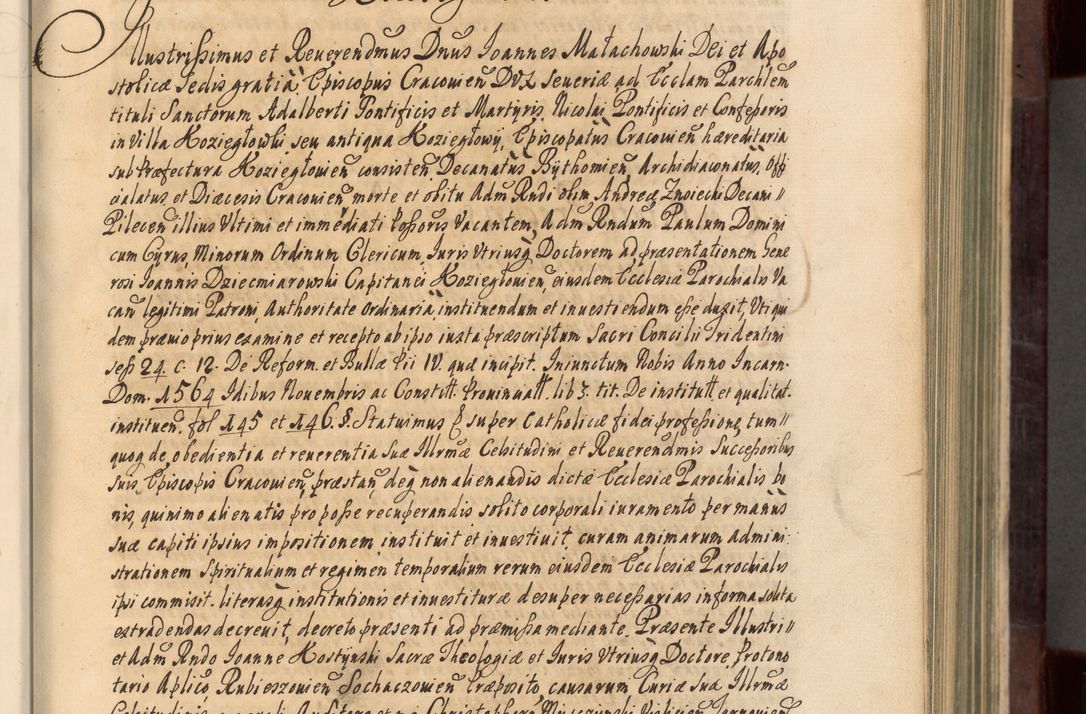 Illustrissimus et Reuerendmus Dnus Ioannes Małachowski Dei et Apo
stolicæ Sedis gratia Episcopus Cracouien DVX Seueriæ ad Ecclam Parchlem
tituli Sanctorum Adalberti Pontificis et Martyris, Nicolai Pontificis et Confessoris
in Villa Koziegłowki seu antiqua Koziegłowy, Episcopatus Cracouien hæreditaria
sub Præfectura Koziegłouien consisten, Decanatus Bythomien, Archidiaconatus, Offi
cialatus, et Diæcesis Cracouien morte et obitu Adm Rndi olim Andreæ Znoiecki Decani
Pilecen illius Vltimi et immediati Possoris Vacantem, Adm Rndum Paulum Domini
cum Cyrus, Minorum Ordinum Clericum, Iuris Vtriusq Doctorem, ad præsentationem Gene
rosi Ioannis Dzieciniarowski Capitanei Koziegłouien, eiusdem Ecclesiæ Parochialis Va
can legitimi Patroni, Authoritate ordinaria, instituendum et inuestiendum esse duxit, Vti qui
dem præuio prius examine et recepto ab ipso iuxta præscriptum Sacri Concilii Tridentini
sess 24. c. 12. De Reform. et Bullæ Pii IV. quæ incipit. Iniunctum Nobis Anno Incarn.
Dom. 1564 Idibus Nouembris ac Constitt. Prouinciall. lib 3. tit. De institutt. et qualitat.
instituen. fol 145 et 146. §. Statuimus & super Catholicæ fidei professione, tum
quoq de obedientia et reuerentia suæ Illrmæ Celsitudini et Reuerendmis Successoribus
suis, Episcopis Cracouien, præstan, deq non alienandis dictæ Ecclesiæ Parochialis bo
nis, quinimo alienatis, pro posse recuperandis solito corporali iuramento per manus
suæ capiti ipsius impositionem, instituit et inuestiuit, curam animarum admini
strationem Spiritualium et regimen temporalium rerum eiusdem Ecclesiæ Parochialis
ipsi commisit. literasq institutionis et inuestituræ desuper necessarias in forma solita
extradendas decreuit, decreto præsenti ad præmissa mediante. Præsente Illustri
et Adm Rndo Ioanne Kostynski Sacræ Theologiæ et Iuris Vtriusq Doctore, Protono
tario Aplico, Rubieszouien Sochaczouien Præposito, causarum Curiæ suæ Illrmæ